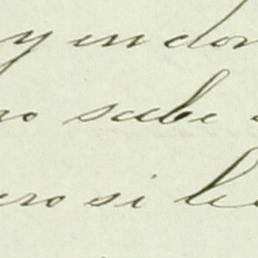 y en don
no sabe
ero si le